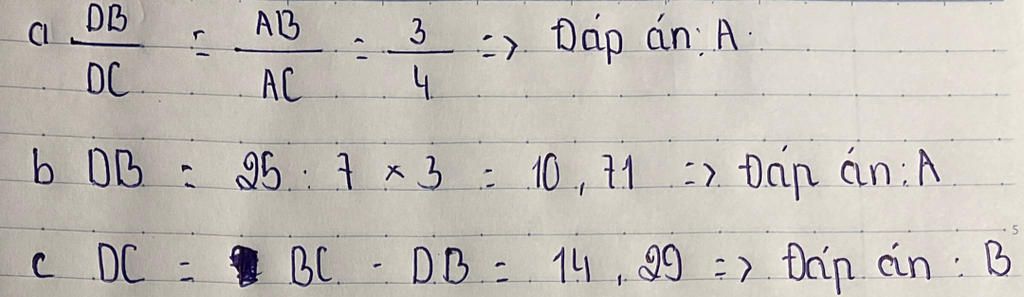 a DB/DC = AB/AC = 3/4 => Đáp án: A.
b DB = 25 : 7 x 3 = 10,71 => Đáp án: A
c DC = BC - DB = 14,29 => Đáp án : B